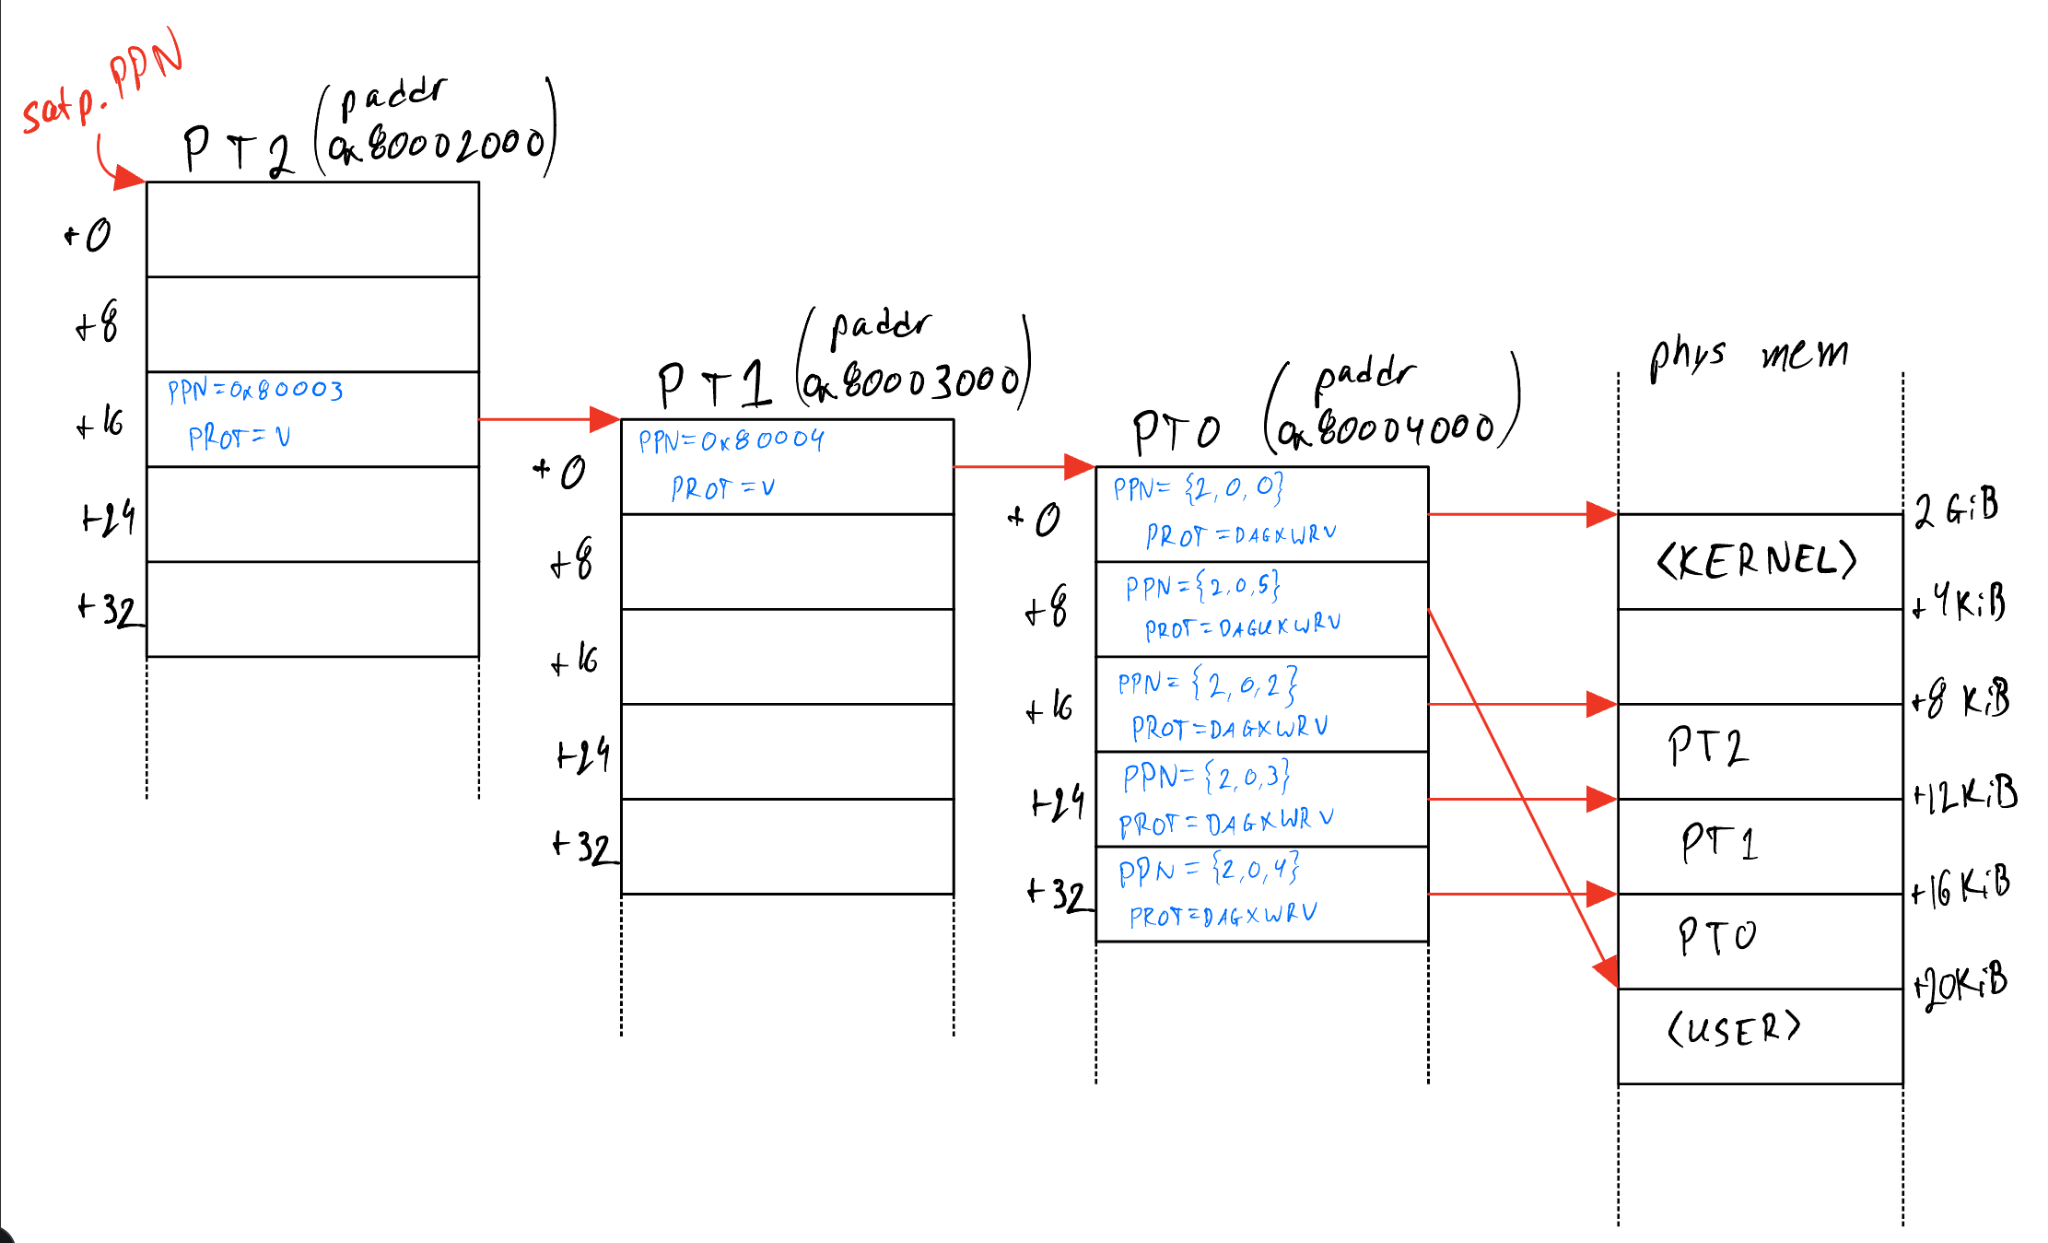 satp.PPN
PT2 (paddr
0x80002000)
+0
+8
+16
PPN=0x80003
PROT=V
+24
+32
PT1 (paddr
0x80003000)
+0
PPN=0x80004
PROT=V
+8
+16
+24
+32
PT0 (paddr
0x80004000)
+0
PPN={2,0,0}
PROT=DAGXWRV
+8
PPN={2,0,5}
PROT=DAGUXWRV
+16
PPN={2,0,2}
PROT=DAGXWRV
+24
PPN={2,0,3}
PROT=DAGXWRV
+32
PPN={2,0,4}
PROT=DAGXWRV
phys mem
2GiB
<KERNEL>
+4KiB
+8 KiB
PT2
+12KiB
PT1
+16KiB
PT0
+20KiB
<USER>